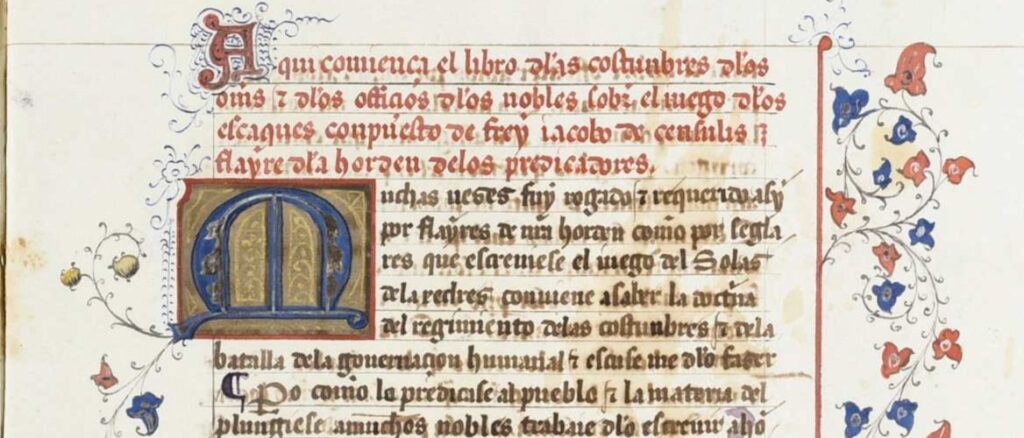 Aqui comiença el libro dlas costunbres dlos
oms ⁊ dlos officios dlos nobles sobr el juego dlos
escaques conpuesto de frey iacobo de censulis ⁊
flayre dla horden delos predicadores.
Muchas ueses fuy rogado ⁊ requerido asy
por flayres de mi horden como por segla
res que escreuiese el juego del Solas
delaxedres conuiene asaber la doctna
del regimiento delas costunbres ⁊ dela
batalla dela gouernaçion humanal ⁊ escuse me dlo fazer
¶ Po como lo predicase al pueblo ⁊ la materia del
pluuguiese amuchos nobles trabaie dlo escreuir